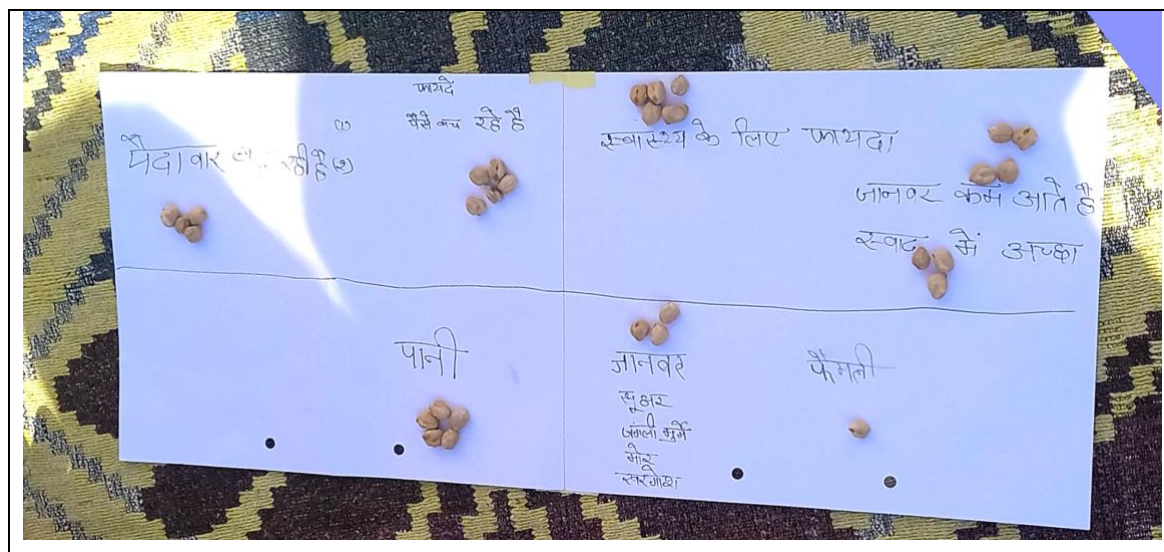 फायदे
(1) पैसे बच रहे है
पैदावार रही है (2)
स्वास्थ्य के लिए फायदा
जानवर कम आते है
स्वाद में अच्छा
पानी
जानवर
सूअर
जंगली मुर्गे
मोर
खरगोश